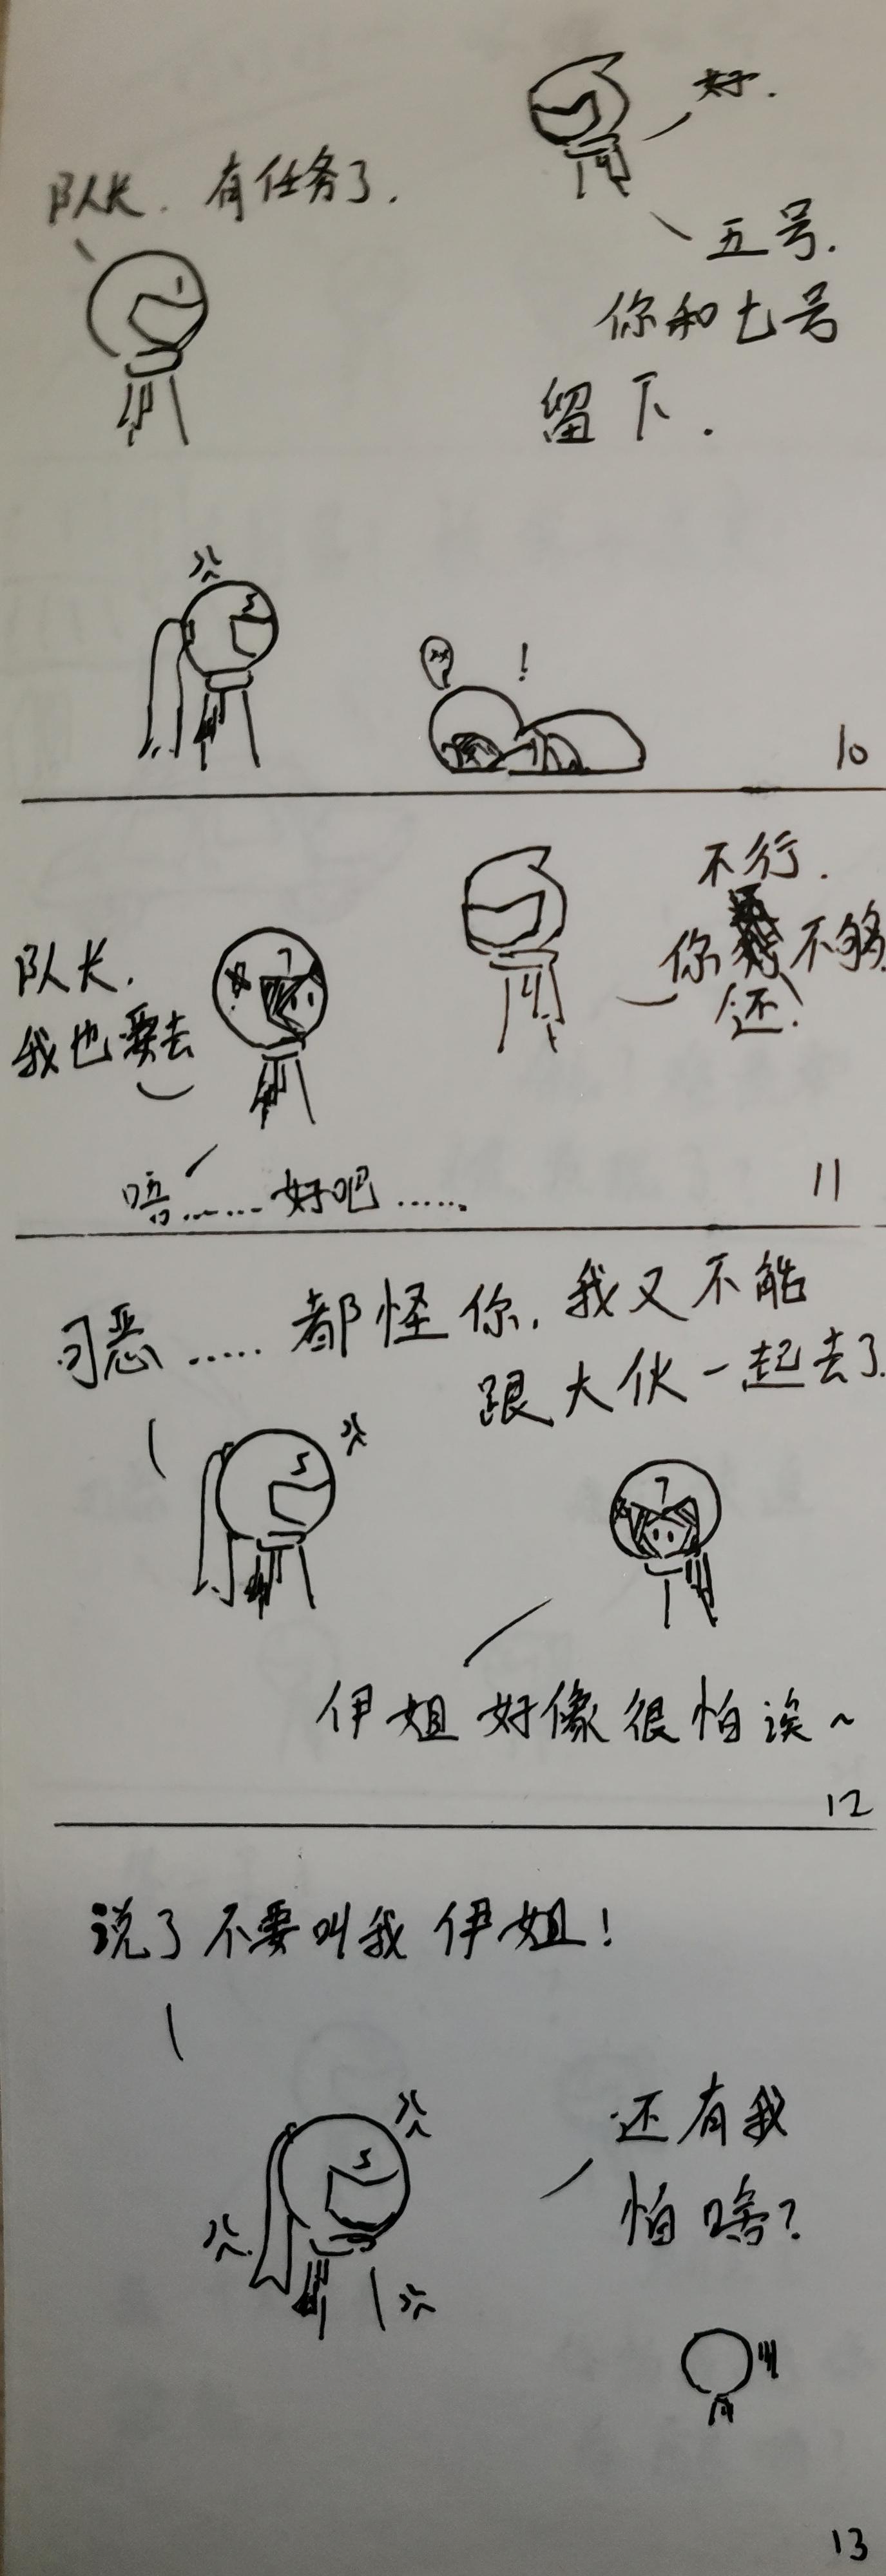 队长.有任务了.
好.
五号.
你和七号
留下.
!
10
队长.
我也要去
不行.
你还不够.
唔……好吧……
11
可恶……都怪你,我又不能
跟大伙一起去了.
伊姐好像很怕诶~
12
说了不要叫我伊姐!
还有我
怕啥?
13